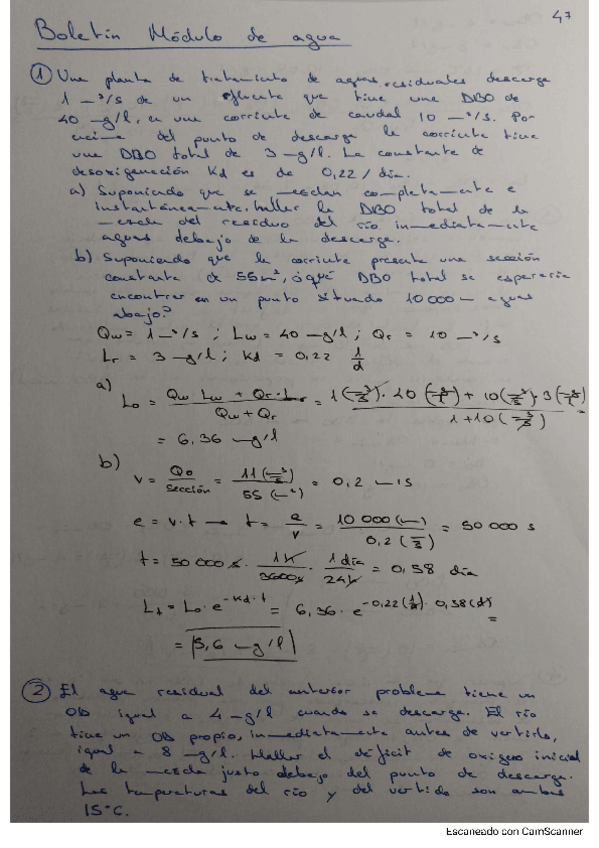 47
Boletín Módulo de agua
① Una planta de tratamiento de aguas residuales descarga
1 m³/s de un efluente que tiene una DBO de
40 mg/l, en una corriente de caudal 10 m³/s. Por
encima del punto de descarga la corriente tiene
una DBO total de 3 mg/l. La constante de
desoxigenación Kd es de 0,22/día.
a) Suponiendo que se mezclan completamente e
instantáneamente, hallar la DBO total de la
mezcla del residuo del río inmediatamente
aguas debajo de la descarga.
b) Suponiendo que la corriente presenta una sección
constante de 55m², ¿qué DBO total se esperaría
encontrar en un punto situado 10000 m aguas
abajo?
Qw = 1 m³/s ; Lw = 40 mg/l ; Qr = 10 m³/s
Lr = 3 mg/l ; Kd = 0,22 1/d
a)
Lo = (Qw Lw + Qr·Lr)/(Qw + Qr) = (1(m³/s)·40(mg/l) + 10(m³/s)·3(mg/l))/(1+10(m³/s))
= 6,36 mg/l
b)
v = Qo/sección = 11(m³/s)/55(m²) = 0,2 m/s
e = v·t → t = e/v = 10 000(m)/0,2(m/s) = 50 000 s
t = 50 000 s · 1h/3600s · 1 día/24h = 0,58 día
Lt = Lo · e^(-Kd·t) = 6,36 · e^(-0,22(1/d)·0,58(d)) =
= 5,6 mg/l
② El agua residual del anterior problema tiene un
OD igual a 4 mg/l cuando se descarga. El río
tiene un OD propio, inmediatamente antes de vertirla,
igual a 8 mg/l. Hallar el déficit de oxígeno inicial
de la mezcla justo debajo del punto de descarga.
Las temperaturas del río y del vertido son ambas
15°C.
Escaneado con CamScanner